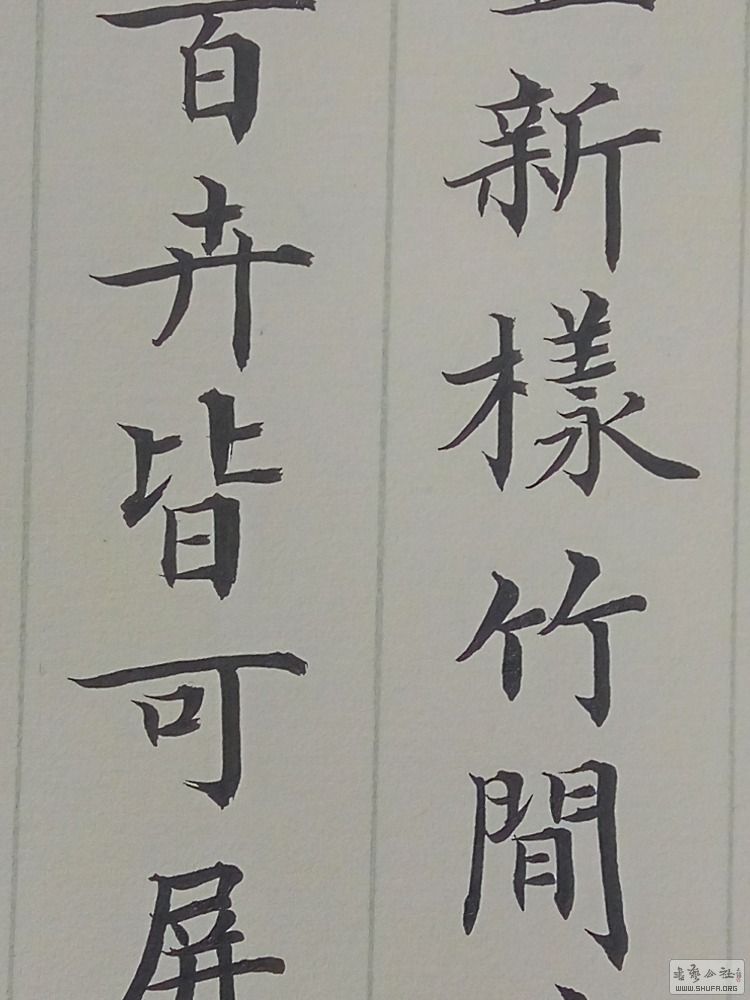 新樣竹間
百卉皆可屏
WWW.SHUFA.ORG